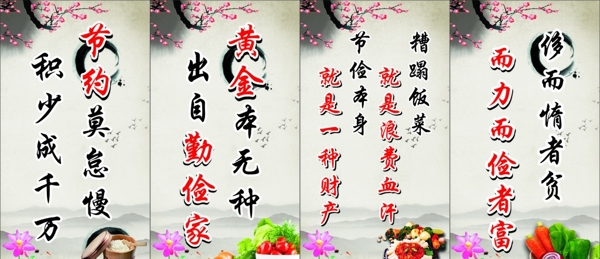 节约莫怠慢
积少成千万
黄金本无种
出自勤俭家
糟蹋饭菜
就是浪费血汗
节俭本身
就是一种财产
侈而惰者贫
而力而俭者富